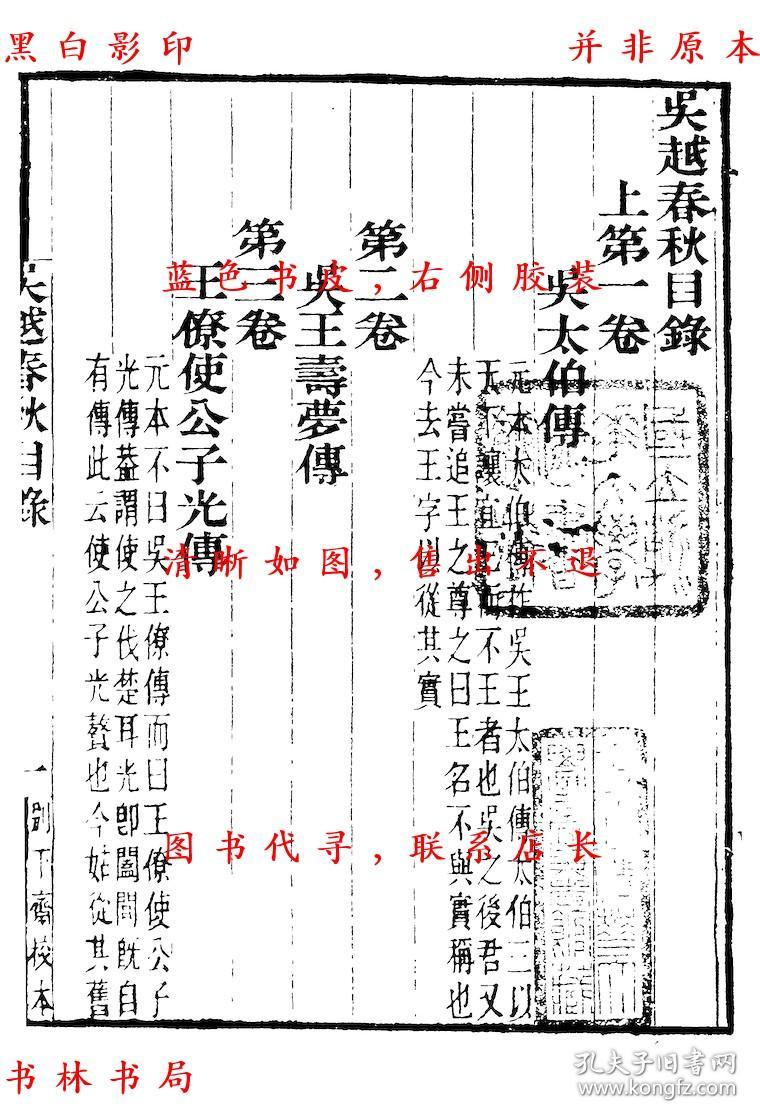 黑白影印
并非原本
吳越春秋目錄
上第一卷
吳太伯傳
元本太伯傳作吳王太伯傳太伯三以
天下讓宜王而不王者也吳之後君又
未嘗追王之尊之曰王名不與實稱也
今去王字以從其實
第二卷
吳王壽夢傳
第三卷
王僚使公子光傳
元本不曰吳王僚傳而曰王僚使公子
光傳葢謂使之伐楚耳光卽闔閭既自
有傳此云使公子光贅也今姑從其舊
吳越春秋目錄
一
別下齋校本
蓝色书皮,右侧胶装
清晰如图,售出不退
图书代寻,联系店长
书林书局
孔夫子旧书网
www.kongfz.com